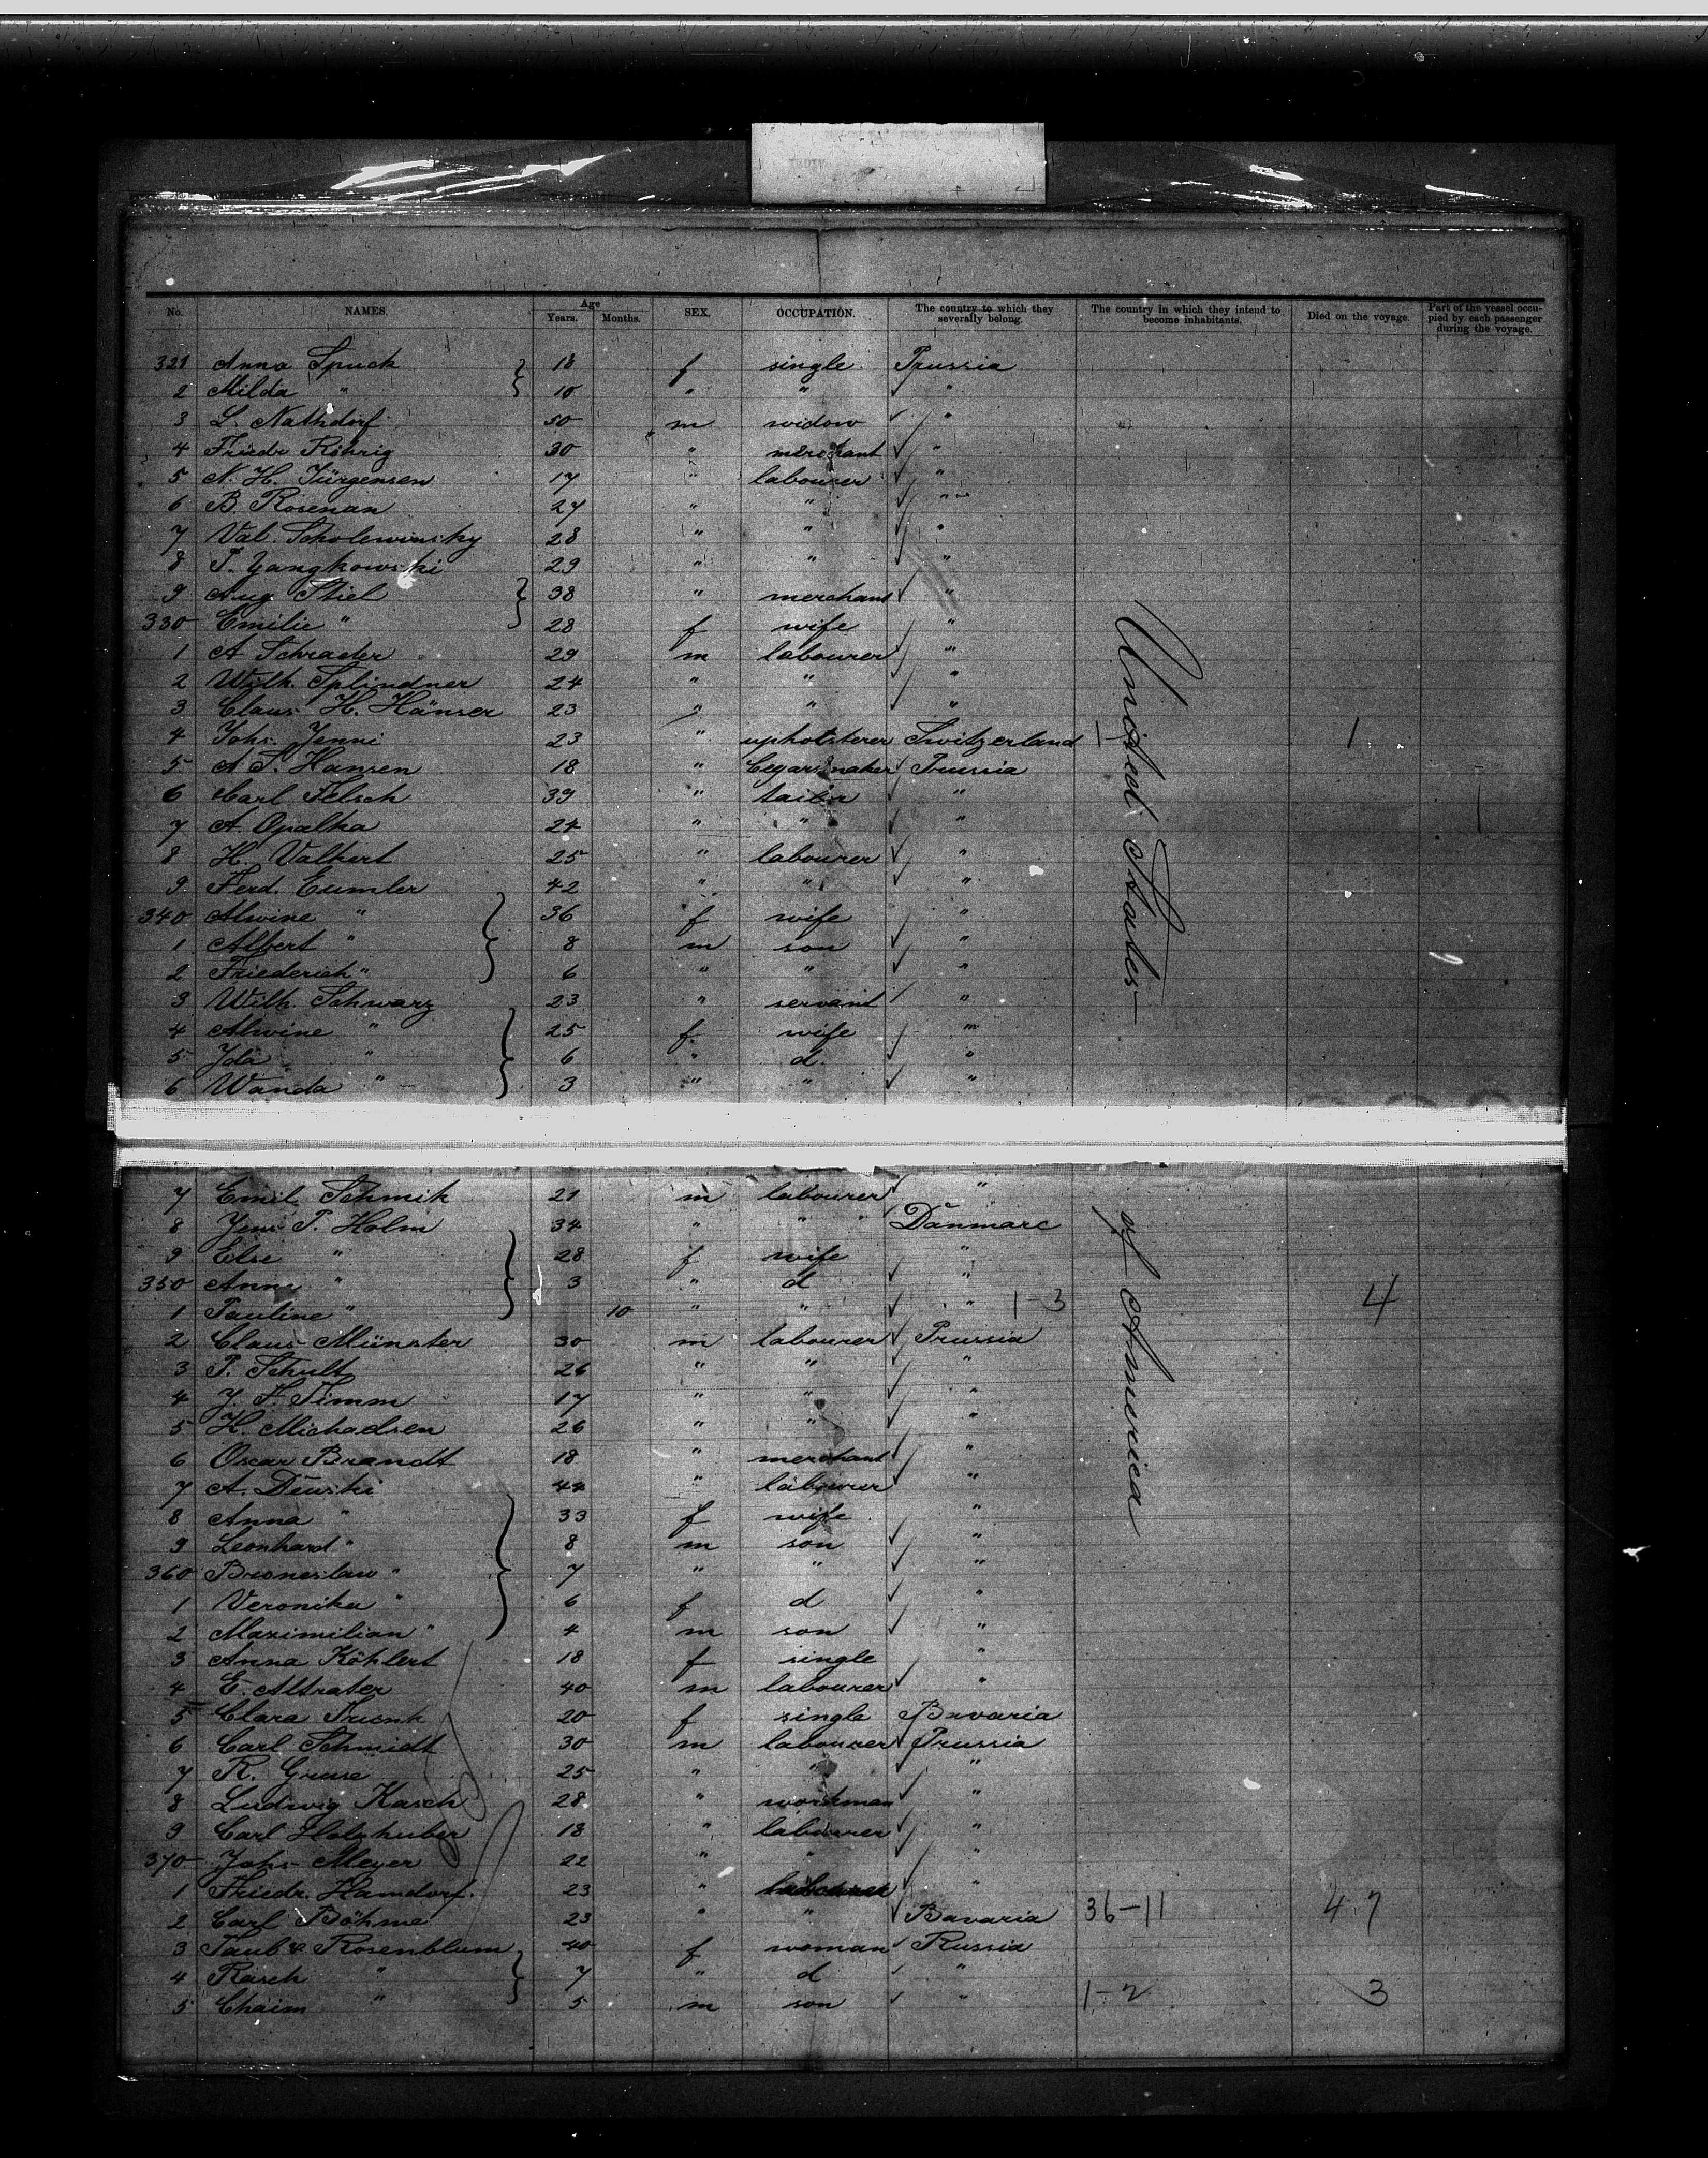 No. NAMES. Age Years. Months. SEX. OCCUPATION. The country to which they severally belong. The country in which they intend to become inhabitants. Died on the voyage. Part of the vessel occupied by each passenger during the voyage.
321 Anna Spuck 18 f single Prussia
2 Milda " 10 " " "
3 L. Nathdorf 50 m widow "
4 Friedr Röhrig 30 " merchant "
5 N. H. Jürgensen 17 " labourer "
6 B. Rosenau 27 " " "
7 Val. Scholewinsky 28 " " "
8 T. Yangkowski 29 " " "
9 Aug Stiel 38 " merchant "
330 Emilie " 28 f wife "
1 A Schrader 29 m labourer "
2 Wilh. Splindner 24 " " "
3 Claus H. Hänser 23 " " "
4 Johs. Jenni 23 " upholsterer Switzerland 1 1
5 A S. Hansen 18 " Cegarsmaker Prussia
6 Carl Felsch 39 " "
7 A. Opalka 24 " " "
8 H. Valkert 25 " labourer "
9 Ferd. Eumler 42 " " "
340 Alwine " 36 f wife "
1 Albert " 8 m son "
2 Friederich " 6 " " "
3 Wilh. Schwarz 23 " servant "
4 Alwine " 25 f wife "
5 Ida " 6 " d. "
6 Wanda " 3 " " "
7 Emil Schmik 21 m labourer "
8 Jens P. Holm 34 " " Danmarc
9 Else " 28 f wife "
350 Anne " 3 " d "
1 Pauline " 10 " " " 1-3 4
2 Claus Münster 30 m labourer Prussia
3 P. Schult 26 " " "
4 J. F. Timm 17 " " "
5 H. Michaelsen 26 " " "
6 Oscar Brandt 18 " merchant "
7 A. Dewski 44 " labourer "
8 Anna " 33 f wife "
9 Leonhard " 8 m son "
360 Broneslaw " 7 " " "
1 Veronika " 6 f d "
2 Maximilian " 4 m son "
3 Anna Köhlert 18 f single "
4 E. Altrater 40 m labourer "
5 Clara 20 f single Bavaria
6 Carl Schmidt 30 m labourer Prussia
7 R. Gruse 25 " " "
8 Ludwig Kasch 28 " workman "
9 Carl Holzhuber 18 " labourer "
370 Johs Meyer 22 " " "
1 Friedr. Hamdorf. 23 " labourer "
2 Carl Böhme 23 " " Bavaria 36-11 47
3 Taube Rosenblum 40 f woman Russia
4 Rasch " 7 " d "
5 Chaim " 5 m son " 1-2 3
United States
of America